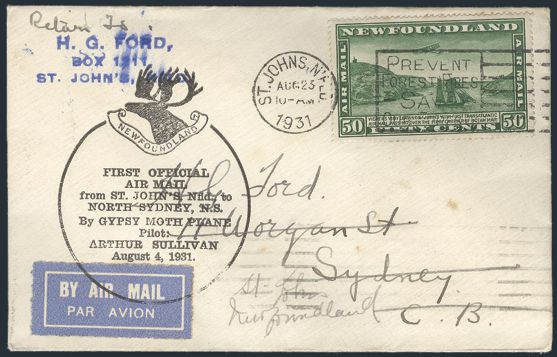 Return To
H. G. FORD,
BOX 1211
ST. JOHN'S,
NEWFOUNDLAND
FIRST OFFICIAL
AIR MAIL
from ST. JOHN'S, Nfld., to
NORTH SYDNEY, N.S.
By GYPSY MOTH PLANE
Pilot:
ARTHUR SULLIVAN
August 4, 1931.
BY AIR MAIL
PAR AVION
ST. JOHNS, NFLD
AUG 23
10-AM
1931
PREVENT
FOREST FIRES
SAVE
NEWFOUNDLAND
AIR MAIL
AIR MAIL
50 FIFTY CENTS 50
H. G. Ford.
11 Morgan St
Sydney
C. B.
St. Johns
Newfoundland